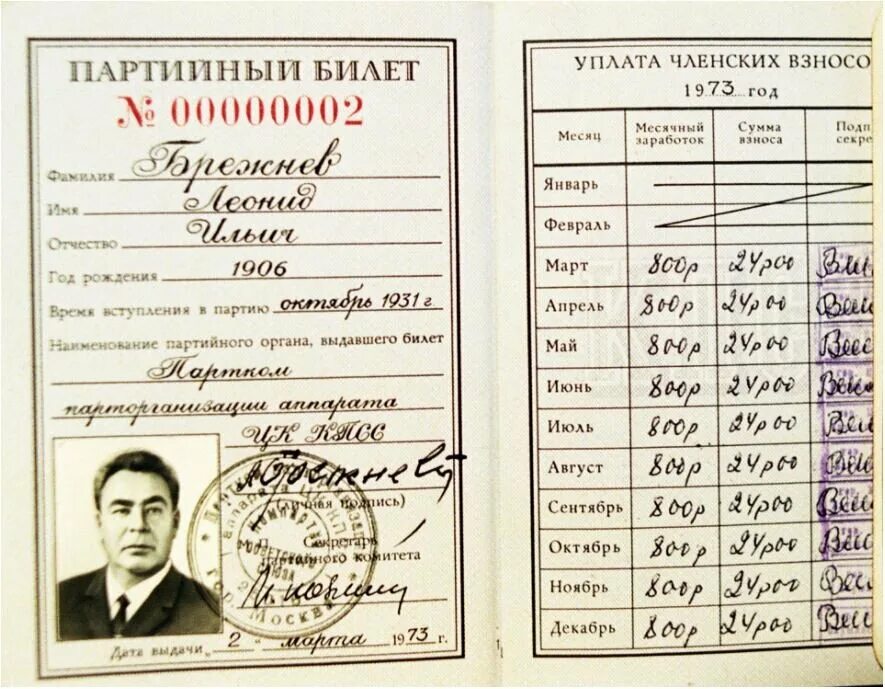 ПАРТИЙНЫЙ БИЛЕТ
№ 00000002
Фамилия Брежнев
Имя Леонид
Отчество Ильич
Год рождения 1906
Время вступления в партию октябрь 1931 г.
Наименование партийного органа, выдавшего билет
Партком
парторганизации аппарата
ЦК КПСС
(личная подпись)
М. П. Секретарь
партийного комитета
Москва
Дата выдачи „2" марта 1973 г.
УПЛАТА ЧЛЕНСКИХ ВЗНОСО
1973 год
Месяц Месячный заработок Сумма взноса Подп секре
Январь
Февраль
Март 800р 24р00
Апрель 800р 24р00
Май 800р 24р00
Июнь 800р 24р00
Июль 800р 24р00
Август 800р 24р00
Сентябрь 800р 24р00
Октябрь 800р 24р00
Ноябрь 800р 24р00
Декабрь 800р 24р00